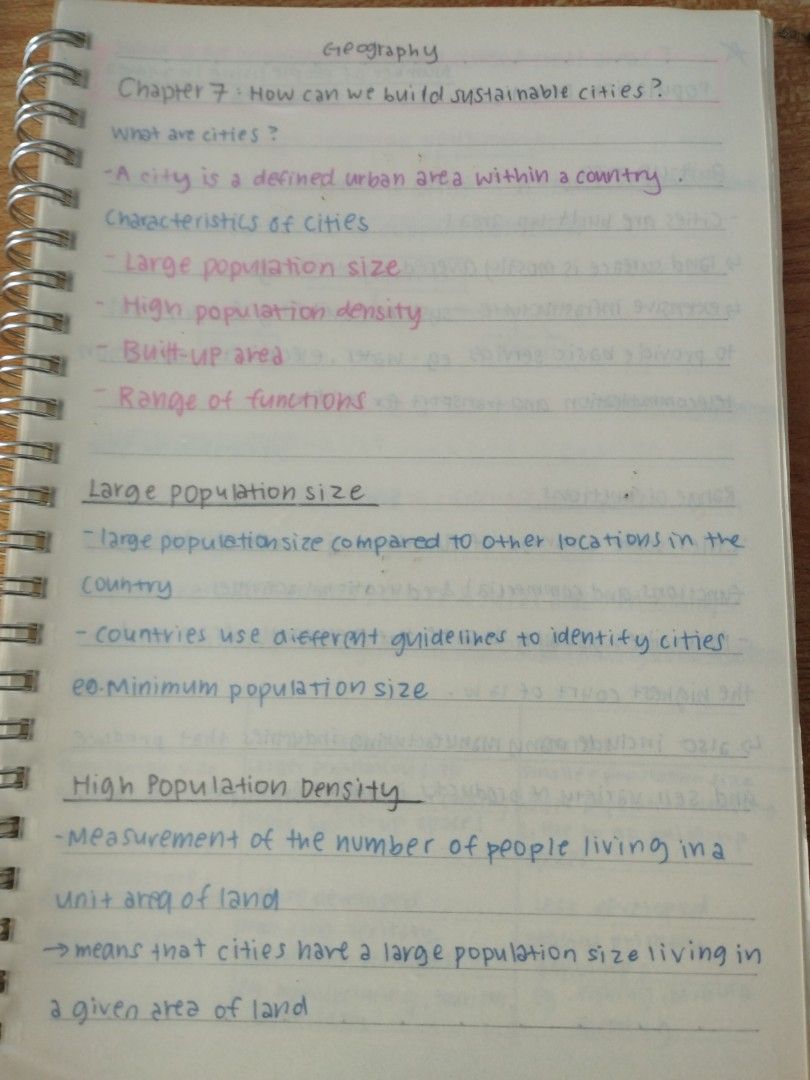 Geography
Chapter 7: How can we build sustainable cities?
What are cities?
- A city is a defined urban area within a country.
Characteristics of cities
- Large population size
- High population density
- Built-up area
- Range of functions
Large population size
- large population size compared to other locations in the
country
- countries use different guidelines to identify cities
eg. Minimum population size
High Population Density
- Measurement of the number of people living in a
unit area of land
→ means that cities have a large population size living in
a given area of land